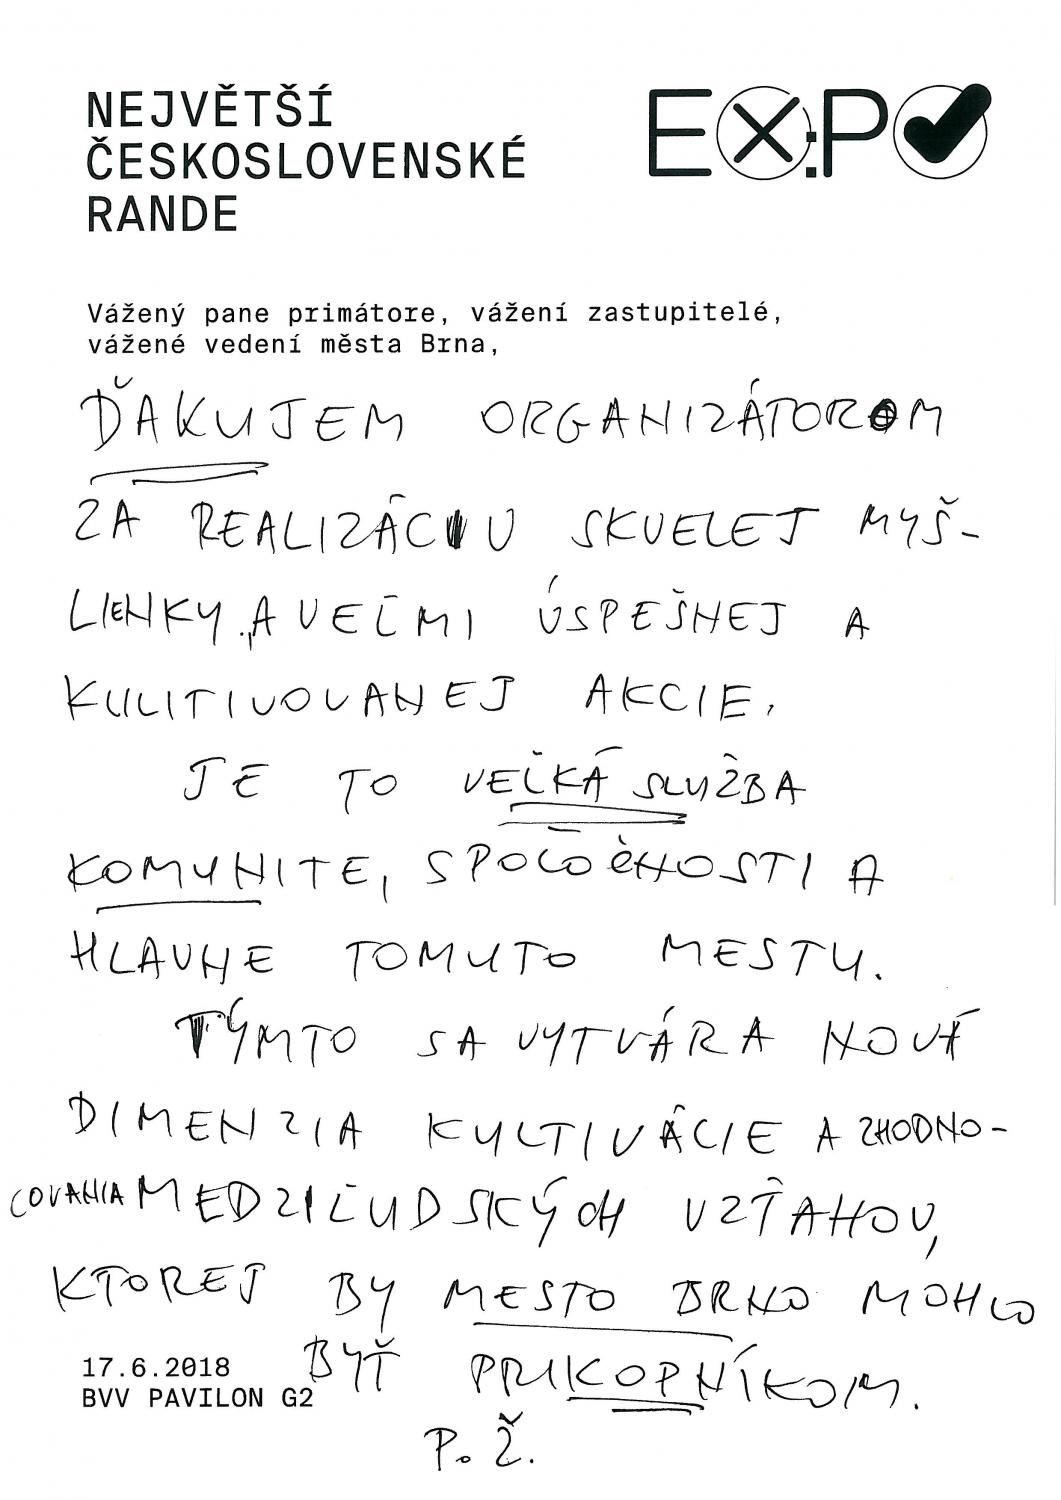 NEJVĚTŠÍ
ČESKOSLOVENSKÉ
RANDE
EX:PO
Vážený pane primátore, vážení zastupitelé,
vážené vedení města Brna,
ĎAKUJEM ORGANIZÁTOROM
ZA REALIZÁCIU SKVELEJ MYŠ-
LIENKY A VEĽMI ÚSPEŠNEJ A
KULITIVOVANEJ AKCIE.
JE TO VEĽKÁ SLUŽBA
KOMUNITE, SPOLOČNOSTI A
HLAVNE TOMUTO MESTU.
TÝMTO SA VYTVÁRA NOVÁ
DIMENZIA KULTIVÁCIE A ZHODNO-
COVANIA MEDZIĽUDSKÝCH VZŤAHOV,
KTOREJ BY MESTO BRNO MOHLO
BYŤ PRIKOPNÍKOM.
P. Ž.
17.6.2018
BVV PAVILON G2